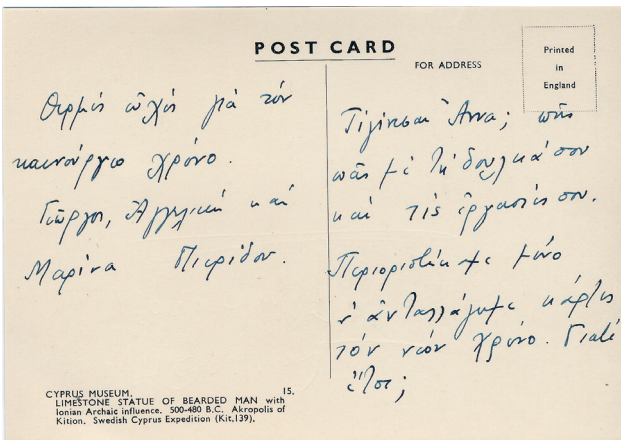 POST CARD
FOR ADDRESS
Printed
in
England
Θερμές εὐχές γιά τόν
καινούργιο χρόνο.
Γιῶργος, Ἀγγελική καί
Μαρίνα Πιερίδου.
Τί γίνεσαι Ἄννα; πῶς
πᾶς μέ τή δουλειά σου
καί τίς ἐργασίες σου.
Περιοριστήκαμε μόνο
ν' ἀνταλλάγουμε κάρτες
τόν νέον χρόνο. Γιατί
ἔτσι;
CYPRUS MUSEUM. 15.
LIMESTONE STATUE OF BEARDED MAN with
Ionian Archaic influence. 500-480 B.C. Akropolis of
Kition. Swedish Cyprus Expedition (Kit.139).